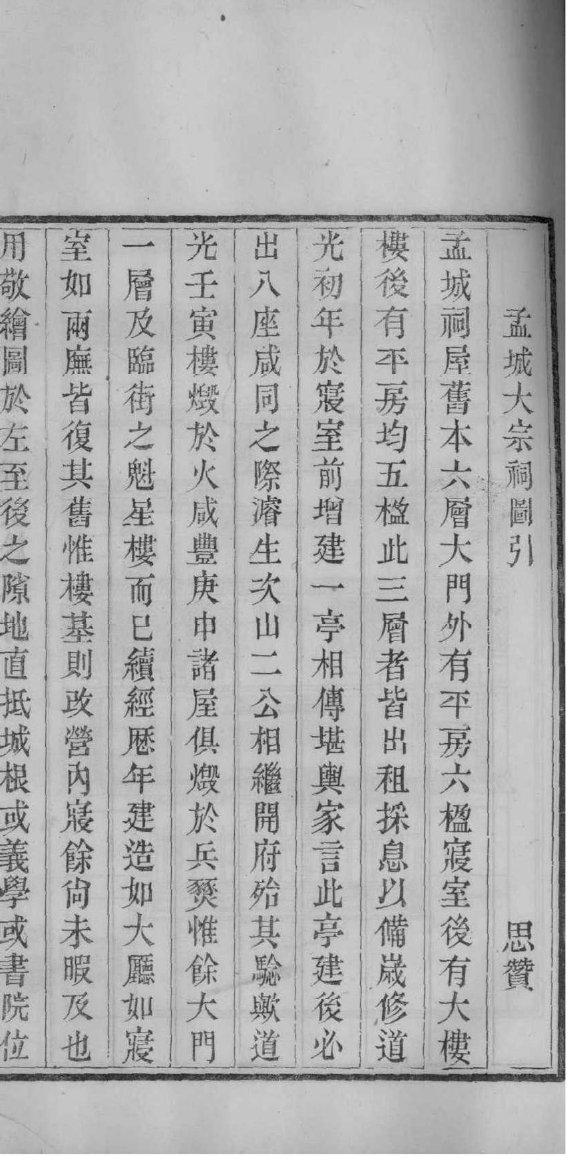 孟城大宗祠圖引 思贊
孟城祠屋舊本六層大門外有平房六楹寢室後有大樓
樓後有平房均五楹此三層者皆出租採息以備歲修道
光初年於寢室前增建一亭相傳堪輿家言此亭建後必
出八座咸同之際濬生次山二公相繼開府殆其驗歟道
光壬寅樓燬於火咸豐庚申諸屋俱燬於兵燹惟餘大門
一層及臨街之魁星樓而已續經歷年建造如大廳如寢
室如兩廡皆復其舊惟樓基則改營內寢餘尚未暇及也
用敬繪圖於左至後之隙地直抵城根或義學或書院位